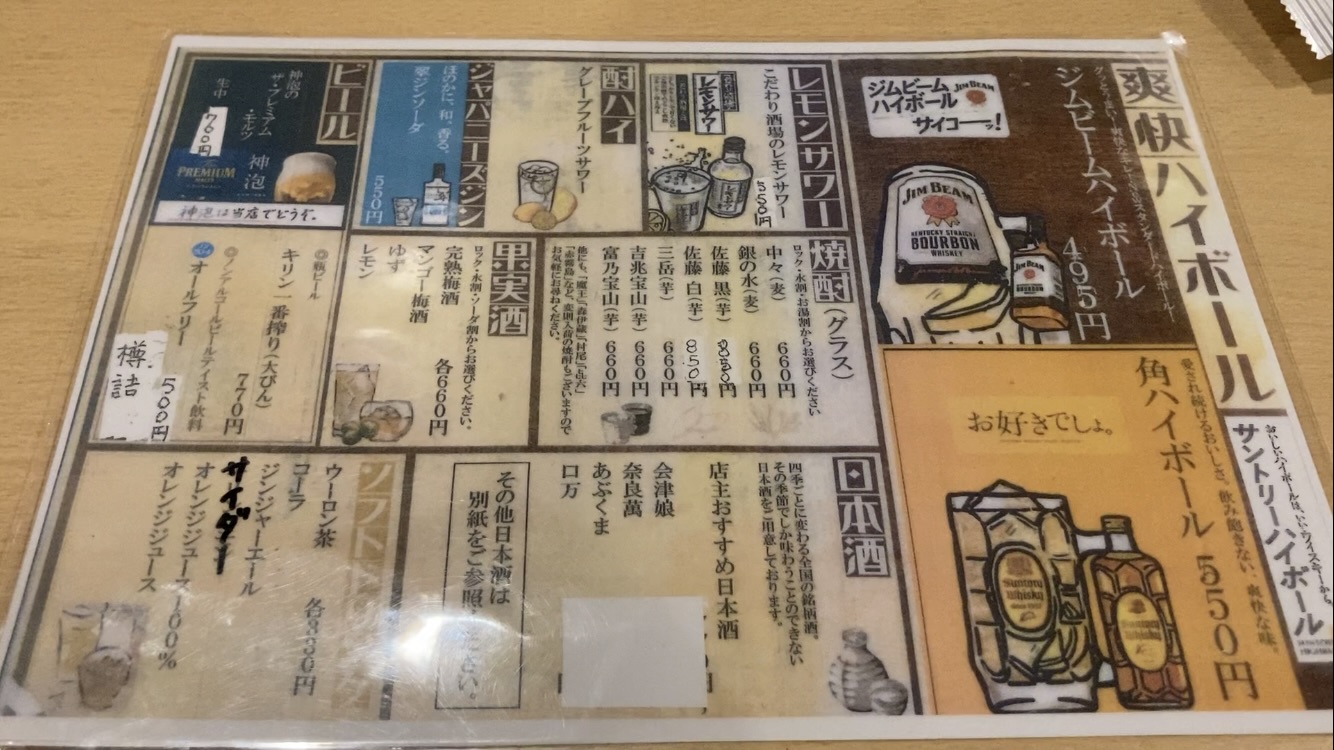 爽快ハイボール
おいしいハイボールは、いいウイスキーから
サントリーハイボール
ジムビームハイボール
495円
ジムビーム
ハイボール
サイコーッ!
JIM BEAM
JIM BEAM
KENTUCKY STRAIGHT
BOURBON
WHISKEY
JIM BEAM
BOURBON
愛され続けるおいしさ。飲み飽きない、爽快な味。
角ハイボール 550円
お好きでしょ。
Suntory
Whisky
レモンサワー
こだわり酒場のレモンサワー
550円
レモンサワー
酎ハイ
グレープフルーツサワー
ジャパニーズジン
ほのかに、和、香る。
翠ジンソーダ
550円
ビール
神泡の
ザ・プレミアム
・モルツ
生中 760円
神泡
PREMIUM
神泡は当店でどうぞ。
◎瓶ビール
キリン一番搾り(大びん)
770円
◎ノンアルコールビールテイスト飲料
オールフリー
500円
樽詰
焼酎(グラス)
ロック・水割・お湯割からお選びください
中々(麦) 660円
銀の水(麦) 660円
佐藤 黒(芋)
佐藤 白(芋) 850円
三岳(芋) 660円
吉兆宝山(芋) 660円
富乃宝山(芋) 660円
他にも、「魔王」「森伊蔵」「村尾」
「赤霧島」など、変則入荷の焼酎もございますので
お気軽にお尋ねください。
果実酒
ロック・水割・ソーダ割からお選びください。
完熟梅酒 各660円
マンゴー梅酒
ゆず
レモン
日本酒
四季ごとに変わる全国の銘柄酒。
その季節でしか味わうことのできない
日本酒をご用意しております。
店主おすすめ日本酒
会津娘
奈良萬
あぶくま
ロ万
その他日本酒は
別紙をご参照ください。
ソフトドリンク
ウーロン茶 各330円
コーラ
ジンジャーエール
サイダー
オレンジジュース100%
オレンジジュース